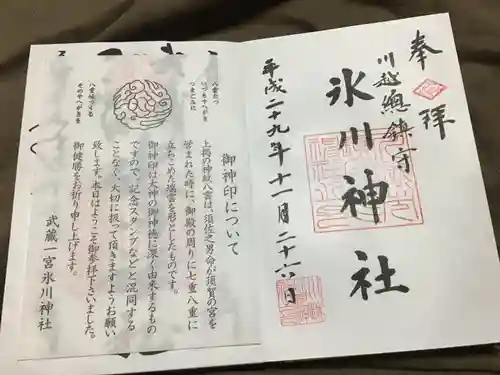 奉拝
川越總鎮守
氷川神社
平成二十九年十一月二十六日
八雲たつ
いづもやへがき
つまごみに
八重垣つくる
そのやへがきを
御神印について
上掲の神紋八雲は、須佐之男命が須賀の宮を
営まれた時に、御殿の周りに七重八重に
立ちこめた瑞雲を形としたものです。
御神印は大神の御神徳に深く由来するもの
ですので、記念スタンプなどと混同する
ことなく、大切に扱って頂きますようお願い
致します。本日はようこそ御参拝下さいました。
御健勝をお祈り申し上げます。
武蔵一宮氷川神社